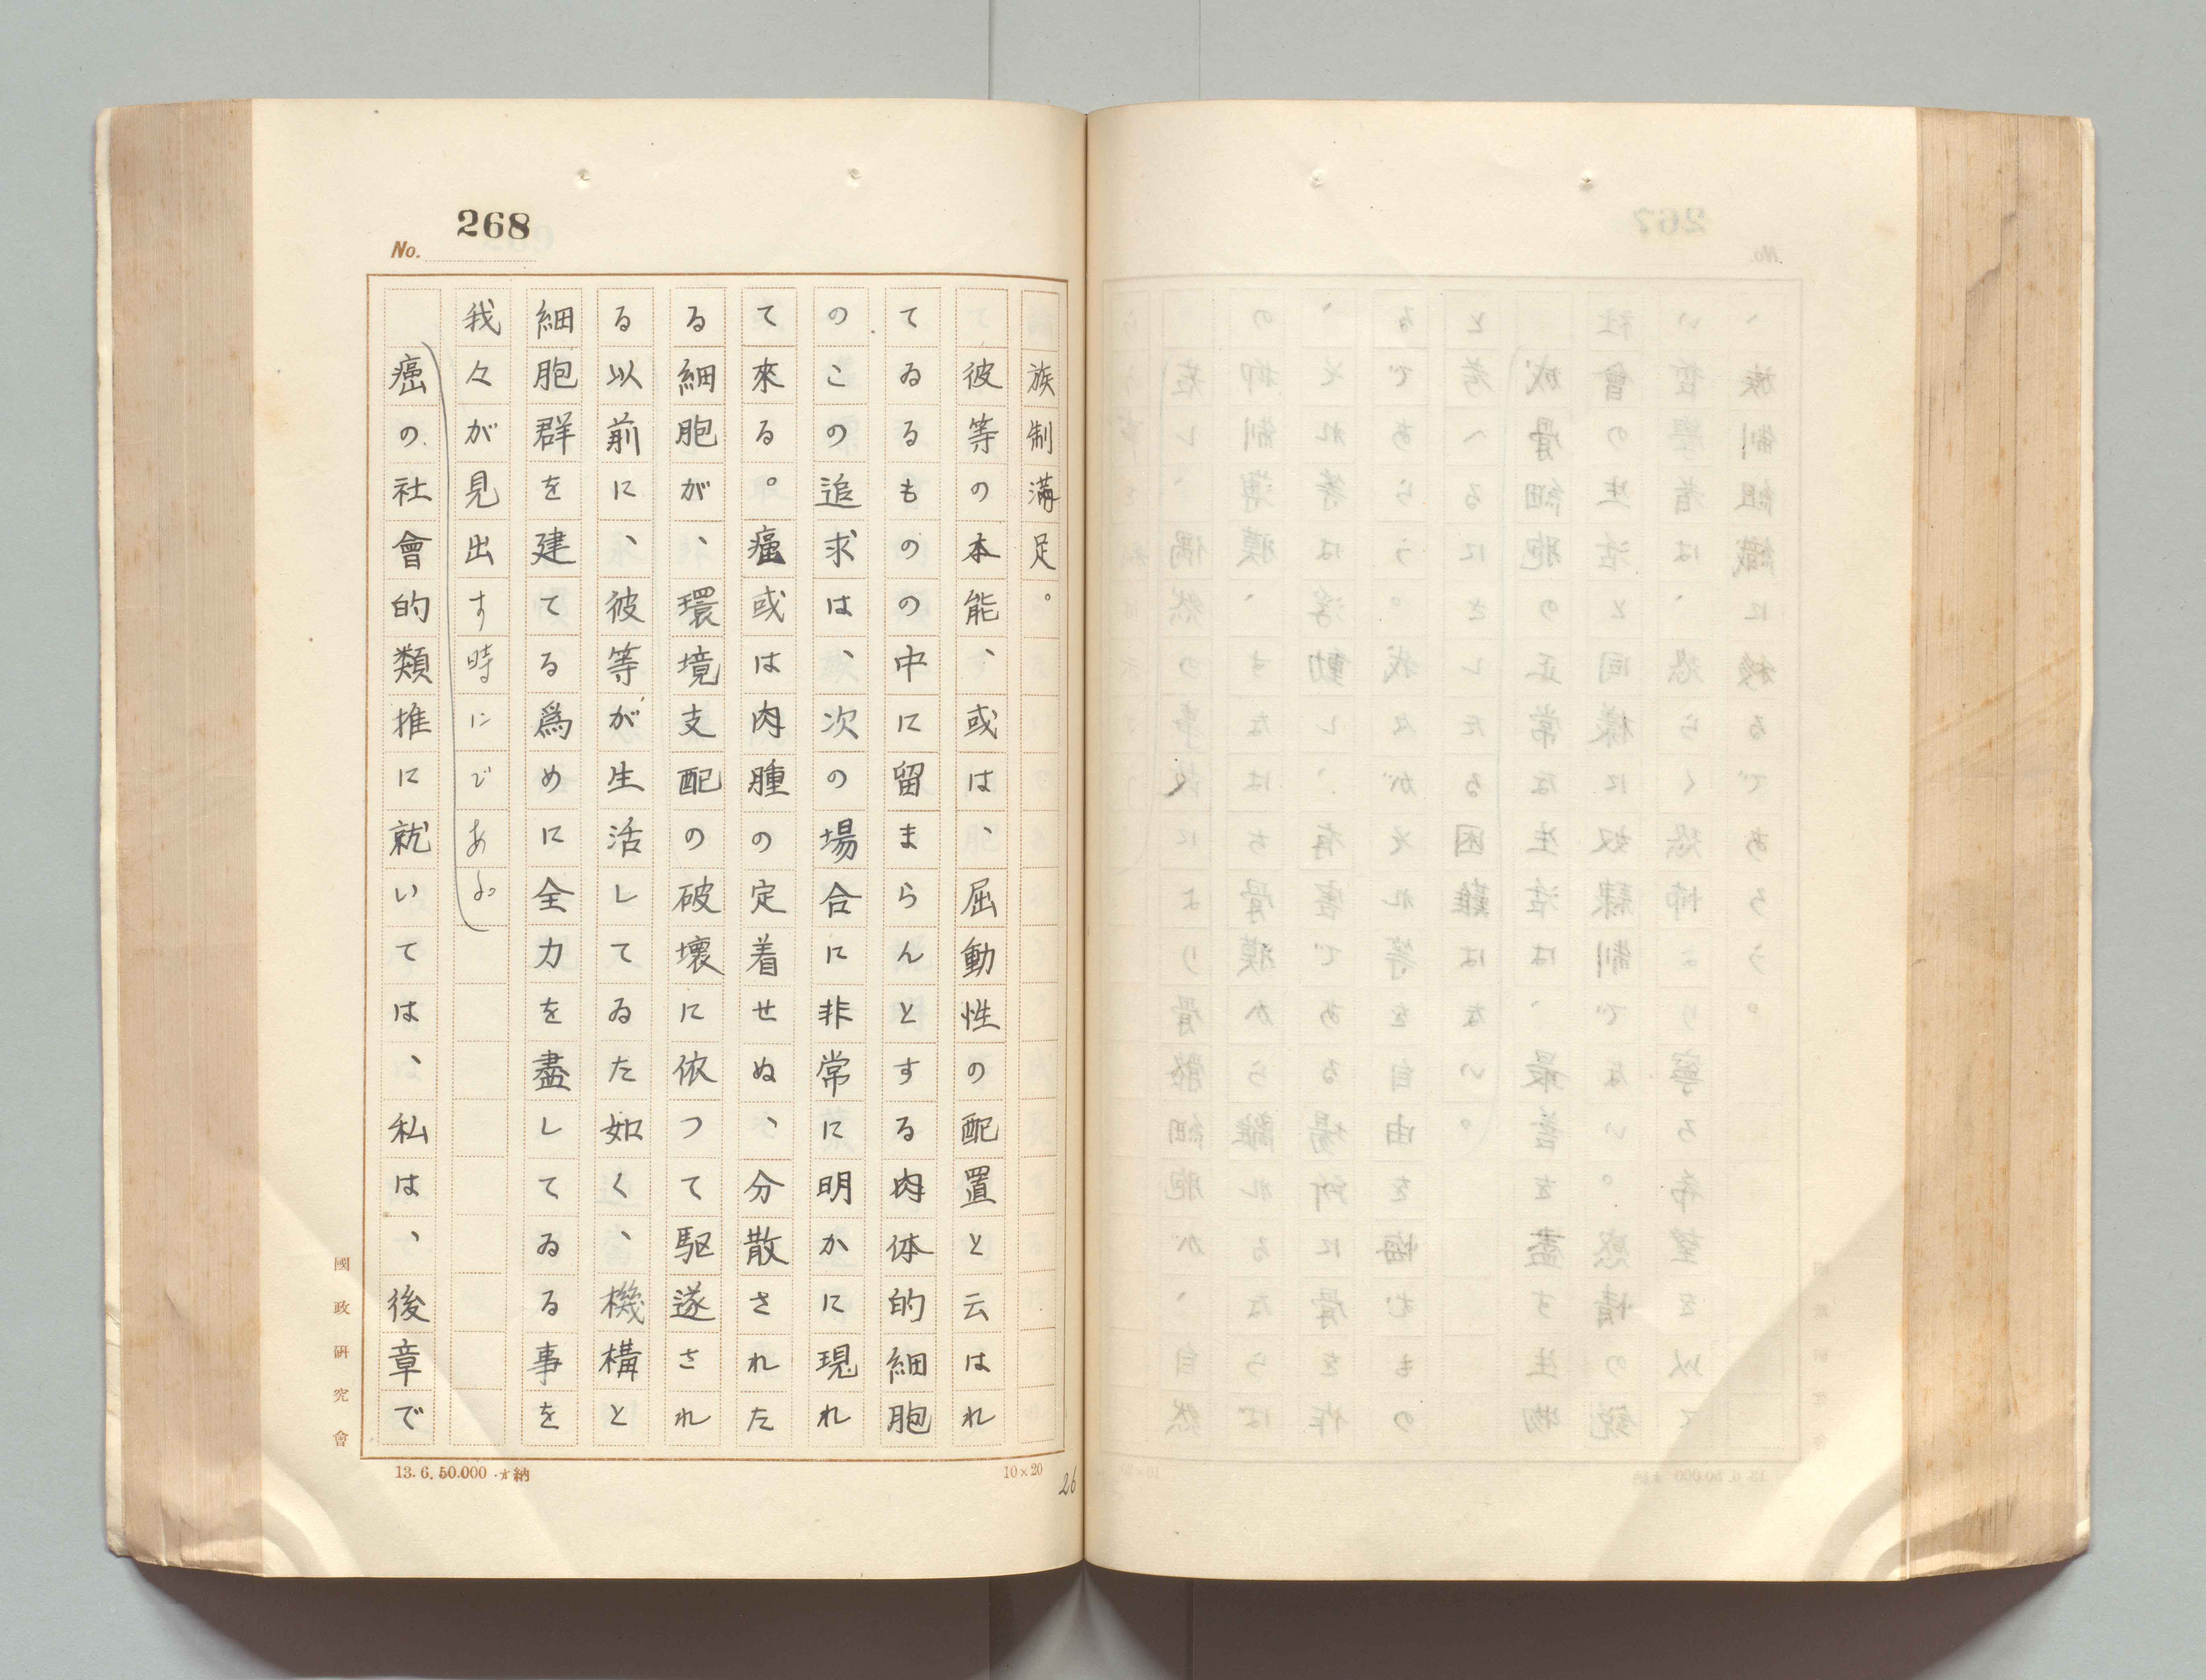 268
No.
族制滿足。
彼等の本能、或は、屈動性の配置と云はれ
てゐるものの中に留まらんとする肉体的細胞
のこの追求は、次の場合に非常に明かに現れ
て來る。癌或は肉腫の定着せぬ、分散された
る細胞が、環境支配の破壞に依つて駆逐され
る以前に、彼等が生活してゐた如く、機構と
細胞群を建てる爲めに全力を盡してゐる事を
我々が見出す時にである
癌の社會的類推に就いては、私は、後章で
國政研究會
13.6.50.000
10×20
26